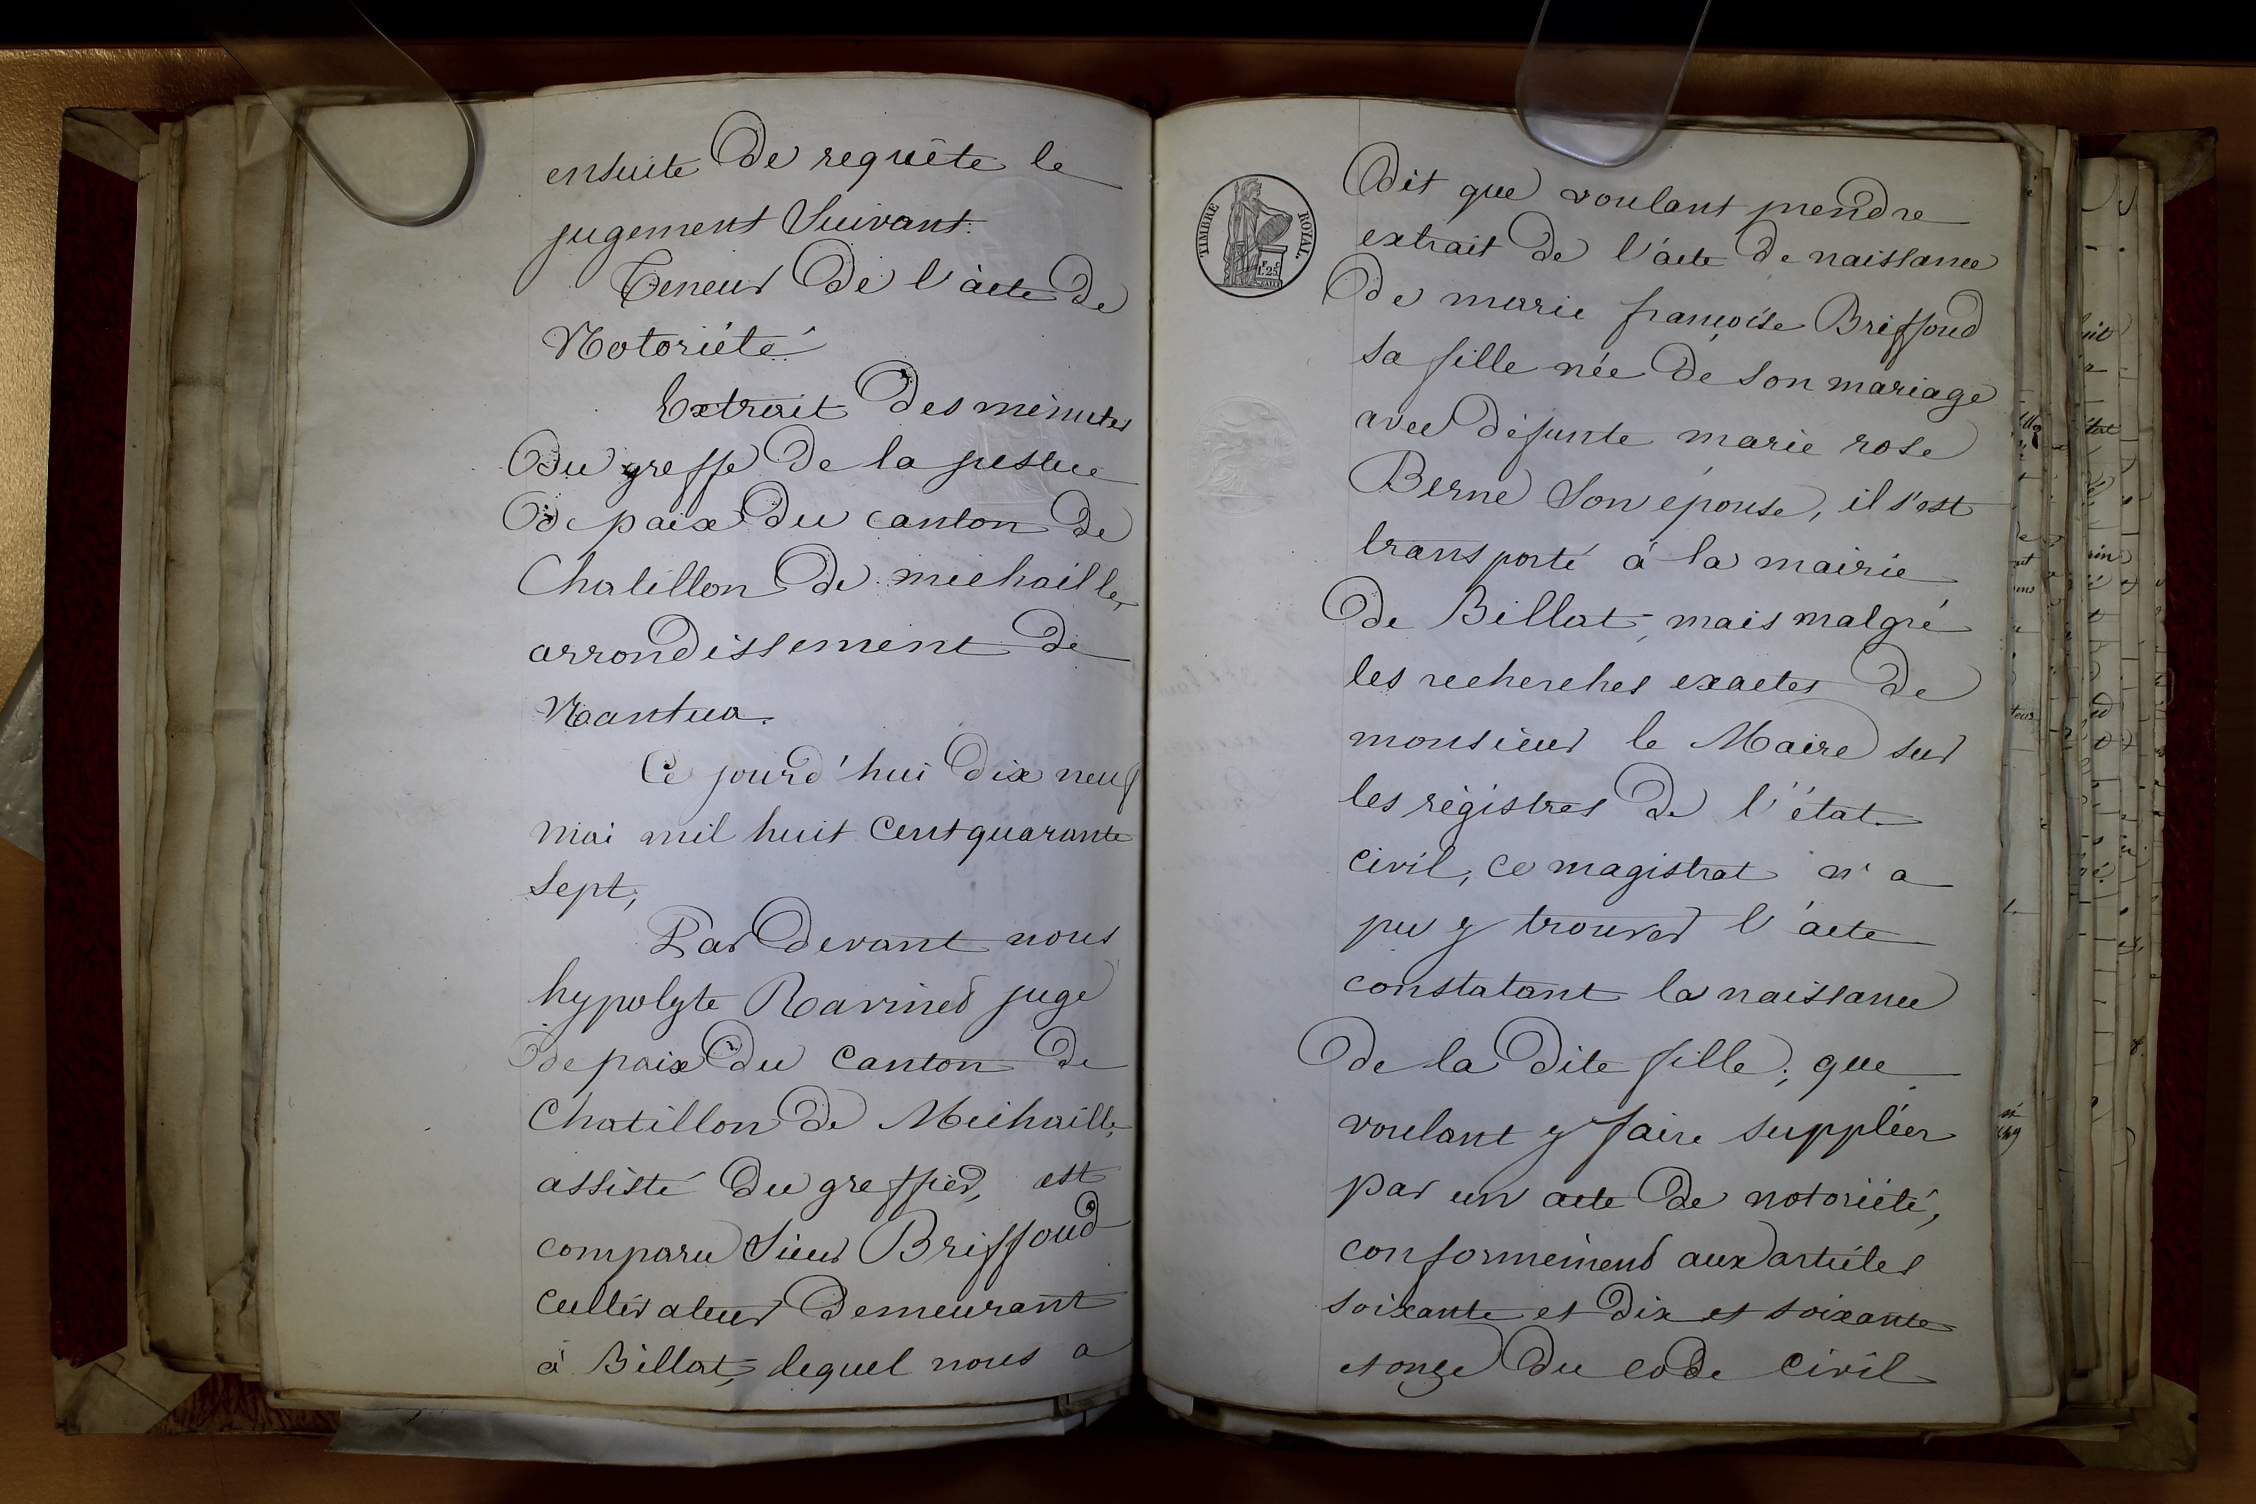 ensuite de requête le
jugement suivant.
Teneur de l'acte de
Notoriété
Extrait des minutes
Du greffe de la justice
de paix du canton de
Chatillon de michaille,
arrondissement de
Nantua.
Ce jourd'hui dix neuf
mai mil huit cent quarante
sept,
Par devant nous
hypolyte Ravinet juge
de paix du canton de
Chatillon de Michaille,
assisté du greffier, est
comparu sieur Briffoud
cultivateur demeurant
à Billat, lequel nous a
TIMBRE ROYAL
1.25
Dit que voulant prendre
extrait de l'acte de naissance
de marie françoise Briffoud
sa fille née de son mariage
avec défunte marie rose
Berne son épouse, il s'est
transporté à la mairie
de Billat, mais malgré
les recherches exactes de
monsieur le Maire sur
les régistres de l'état
civil, ce magistrat n'a
pu y trouver l'acte
constatant la naissance
de la dite fille; que
voulant y faire suppléer
par un acte de notoriété,
conformément aux articles
soixante et dix et soixante
et onze du code civil